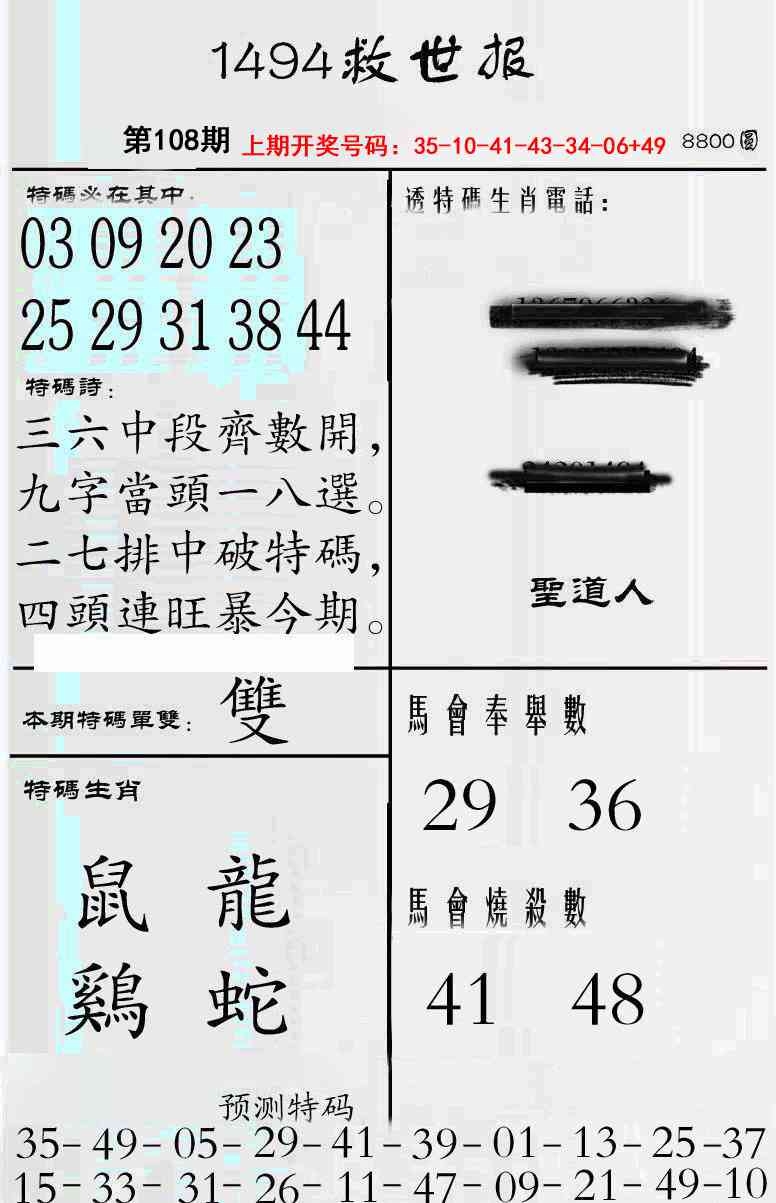 1494救世报
第108期 上期开奖号码：35-10-41-43-34-06+49 8800圓
特碼必在其中：
03 09 20 23
25 29 31 38 44
特碼詩：
三六中段齊數開，
九字當頭一八選。
二七排中破特碼，
四頭連旺暴今期。
本期特碼單雙： 雙
特碼生肖
鼠 龍
鷄 蛇
透特碼生肖電話：
聖道人
馬會奉舉數
29 36
馬會燒殺數
41 48
预测特码
35-49-05-29-41-39-01-13-25-37
15-33-31-26-11-47-09-21-49-10